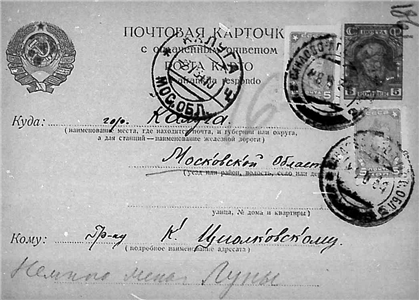 ПОЧТОВАЯ КАРТОЧК
с оплаченным ответом
POŜTA KARTO
respondo
КАЛУГА
МОС.ОБЛ.
ПОЧТА
5
5
Куда: гор. Калуга.
(наименование места, где находится почта, и губернии или округа,
а для станций — наименование железной дороги)
Московской Област
(уезд или район, волость, село или де
улица, № дома и квартиры)
Кому: Гр-ну К. Циолковскому.
(подробное наименование адресата)
Немного меньш Луны